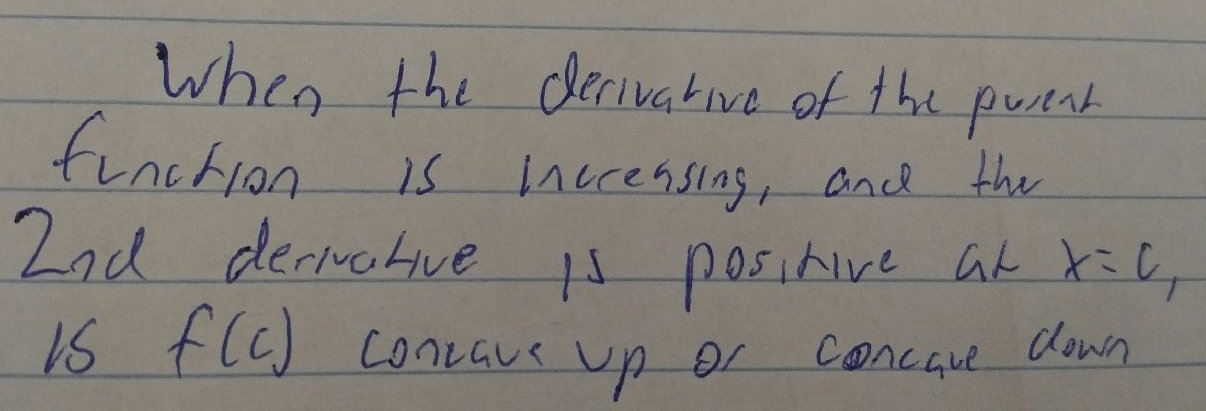 When the derivative of the parent
function is increasing, and the
2nd derivative is positive at x=c,
is f(c) concave up or concave down